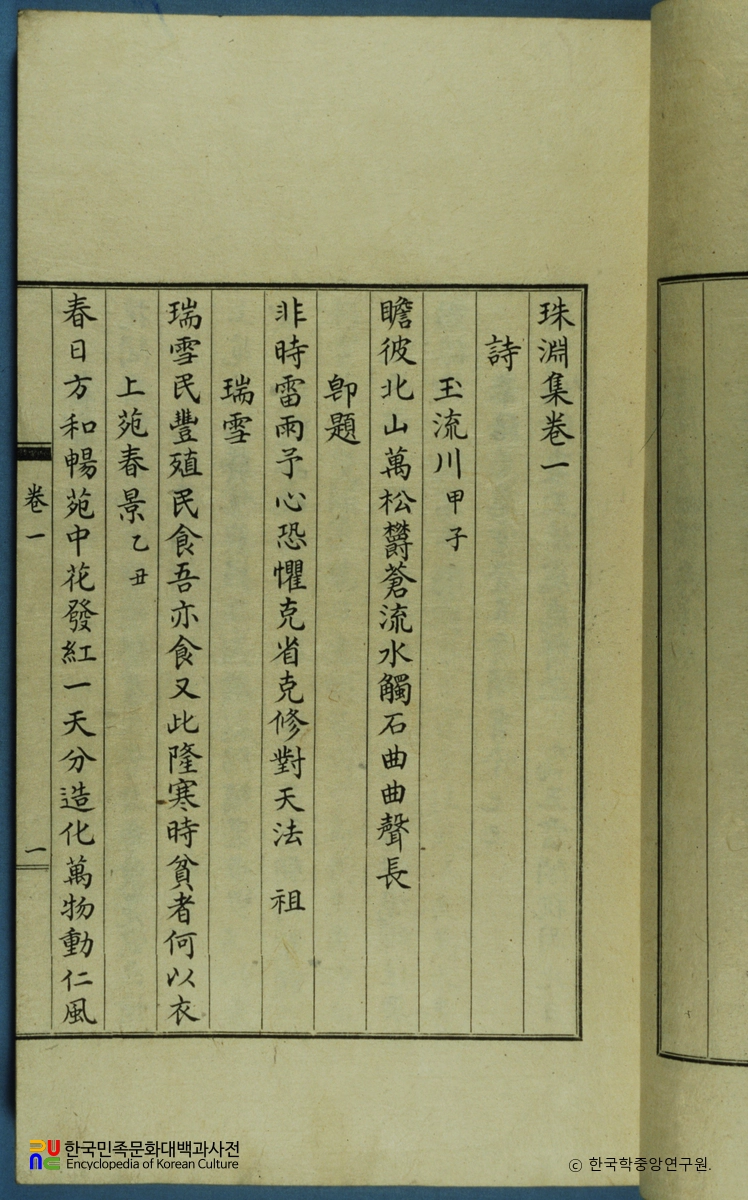 珠淵集卷一
詩
玉流川 甲子
瞻彼北山萬松欝蒼流水觸石曲曲聲長
卽題
非時雷雨予心恐懼克省克修對天法 祖
瑞雪
瑞雪民豐殖民食吾亦食又此隆寒時貧者何以衣
上苑春景 乙丑
春日方和暢苑中花發紅一天分造化萬物動仁風
卷一
一
한국민족문화대백과사전
Encyclopedia of Korean Culture
ⓒ 한국학중앙연구원.